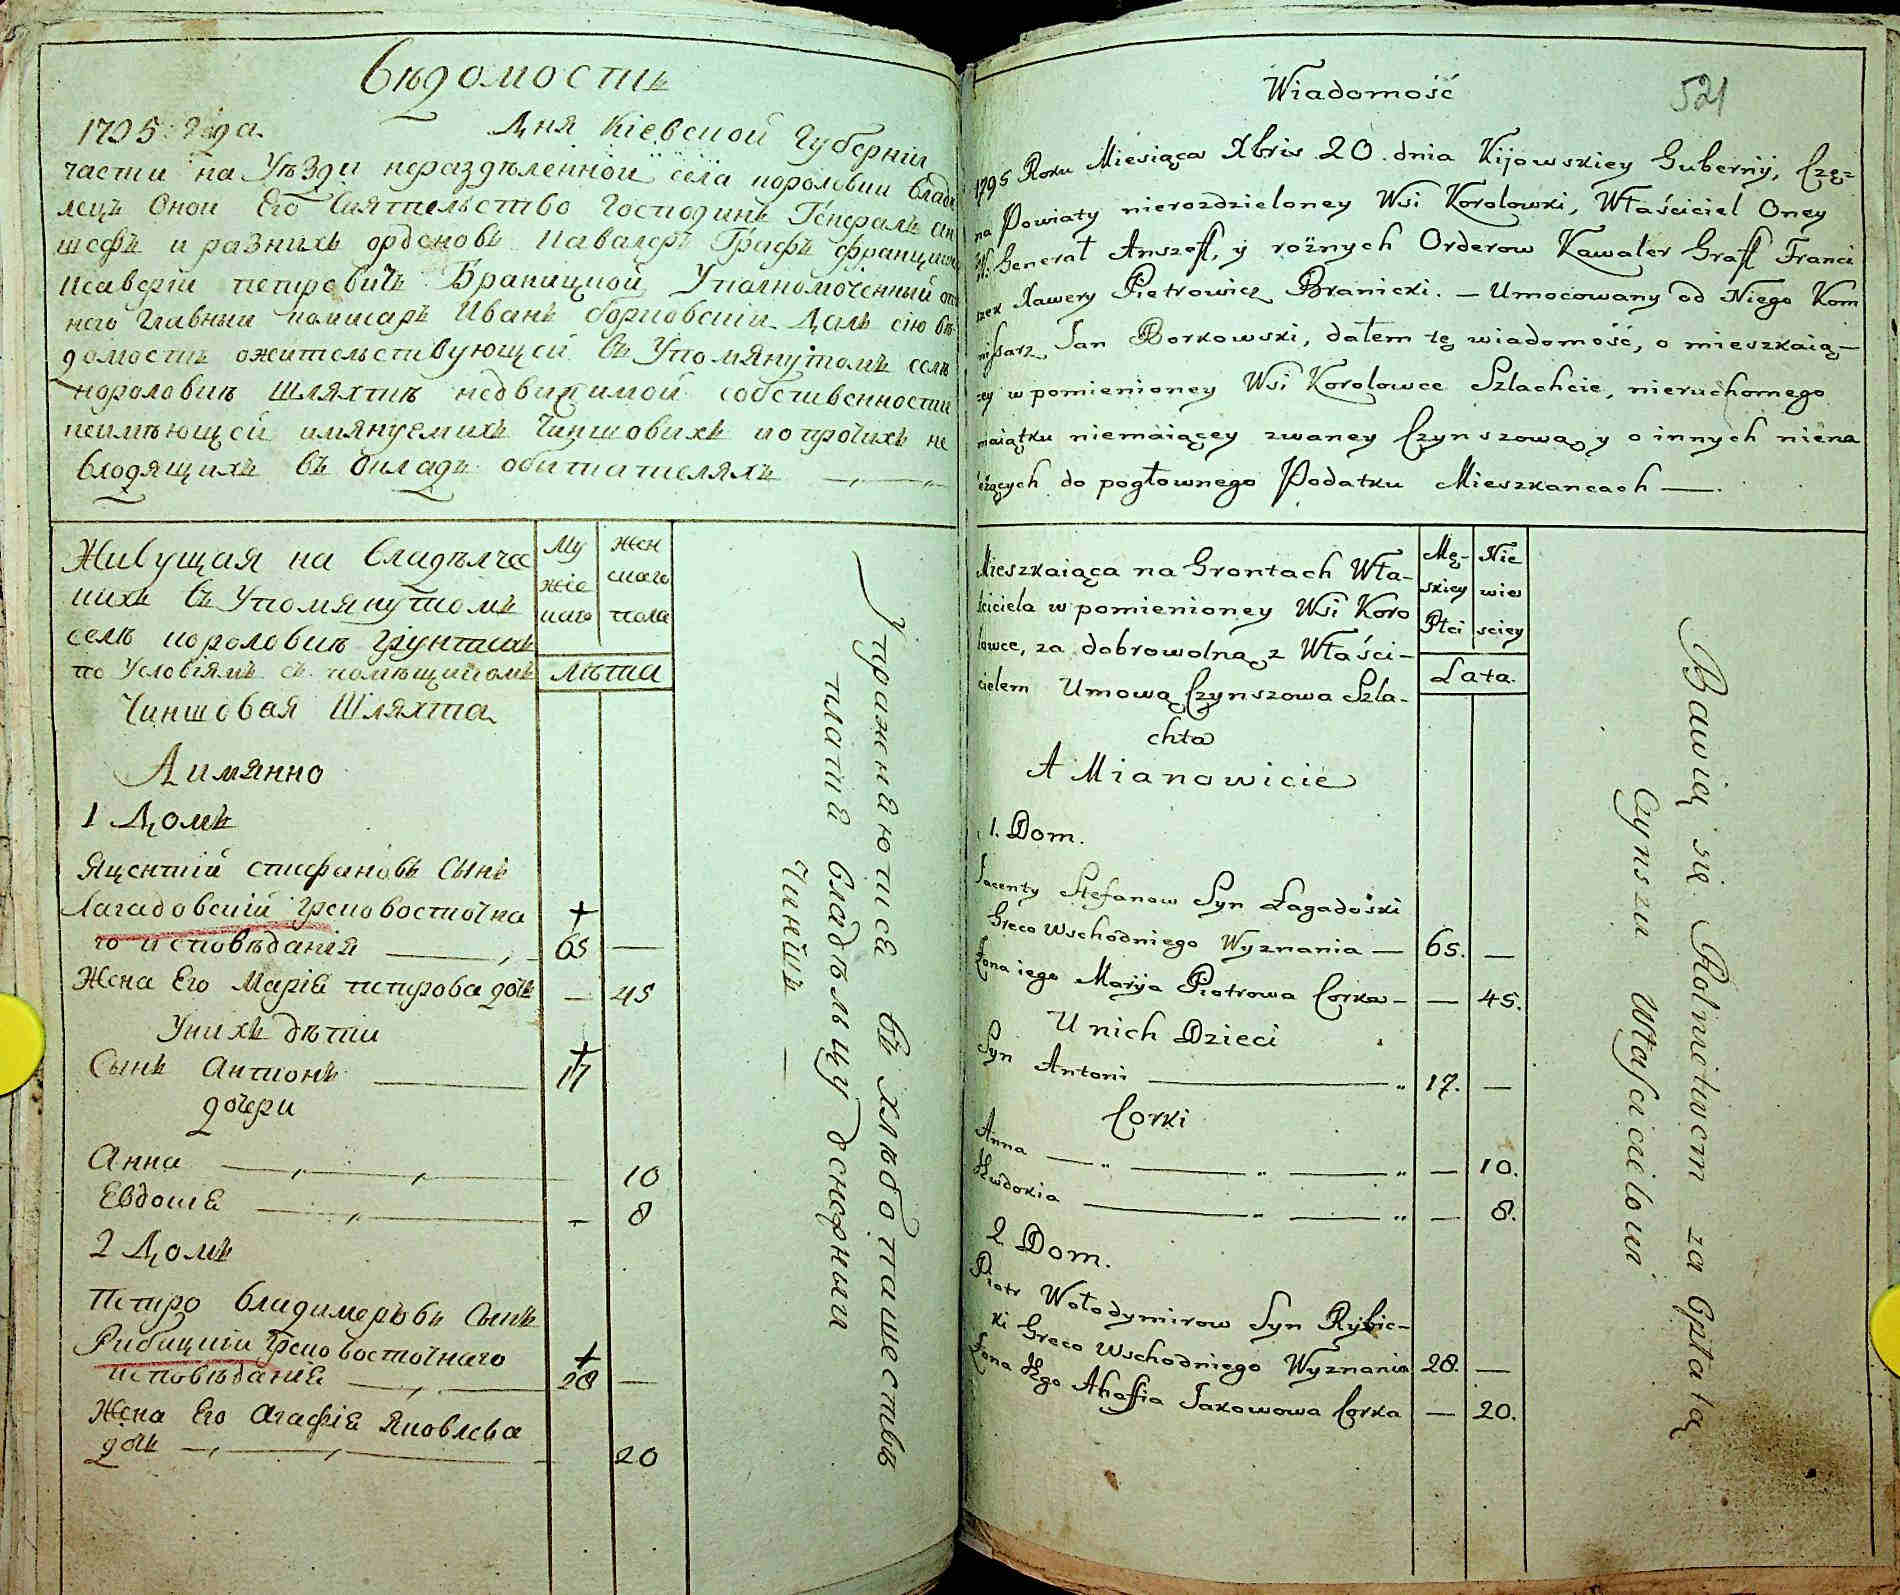 Вѣдомость
1795: Года. Дня Кіевской Губерніи
части на Уѣзди нераздѣленной села королевки Владѣ
лецъ Оной Его Сиятельство Господинъ Генералъ ан
шефъ и разнихъ орденовъ Кавалеръ Графъ францишк
Ксаверій петровичъ Браницкой Уполномоченный от
него Главный комисаръ Иванъ борковскій Далъ сію вѣ
домость ожительствующей въ Упомянутомъ селѣ
королювкѣ шляхтѣ недвижимой собственности
неимѣющей имянуемихъ Чиншовихъ и о протчихъ не
входящихъ въ окладъ обитателяхъ
Живущая на владѣлчес
кихъ въ Упомянутомъ
селѣ королювкѣ Грунтахъ
по Условіямъ съ помѣщикомъ
Чиншовая Шляхта
Му
жес
каго
жен
скаго
пола
Лѣта
А имянно
1 Домъ
Яцентій стефановъ Сынъ
Лагадовскій Греко восточна
го исповѣданія 65 —
Жена Его Марія петрова дочь — 45
У нихъ дѣти
Сынъ Антонъ 17
дочери
Анна 10
Евдокія — 8
2 Домъ
Петро Владимеровъ Сынъ
Рибицкій Греко восточнаго
исповѣданія 28 —
Жена Его Агафія Яковлева
дочь 20
Упражняютися въ хлѣбопашествѣ
платя владѣльцу денежный
Чиншъ —
521
Wiadomość
1795 Roku Miesiąca Xbris 20. dnia Kijowskiey Gubernij, Czę=
na Powiaty nierozdzieloney Wsi Korolowki, Właściciel Oney
W: Generał Anszeff, y rożnych Orderow Kawaler Graff Franci
szek Xawery Pietrowicz Branicki. — Umocowany od Niego Kom
missarz Jan Borkowski, dałem tę wiadomość, o mieszkaią—
cey w pomienioney Wsi Korolowce Szlachcie, nieruchomego
maiątku niemaiącey zwaney Czynszową y o innych niena
leżących do pogłownego Podatku Mieszkancach —
Mieszkaiąca na Grontach Wła-
ściciela w pomienioney Wsi Koro
lowce, za dobrowolną z Właści-
cielem Umową Czynszowa Szla-
chta
Mę-
skiey
Płci
Nie
wie
sciey
Lata.
A Mianowicie
1. Dom.
Jacenty Stefanow Syn Łagadoski
Greco Wschodniego Wyznania — 65. —
Zona iego Maryja Piotrowa Corka — — 45.
U nich Dzieci
Syn Antoni — 17. —
Corki
Anna — — 10.
Ewdokia — — 8.
2 Dom.
Piotr Wołodymirow Syn Rybic-
ki Greco Wschodniego Wyznania 28. —
Zona Ego Ahaffia Jakowowa Corka — 20.
Bawią się Rolnictwem za Opłatą
Czynszu Włascicielowi